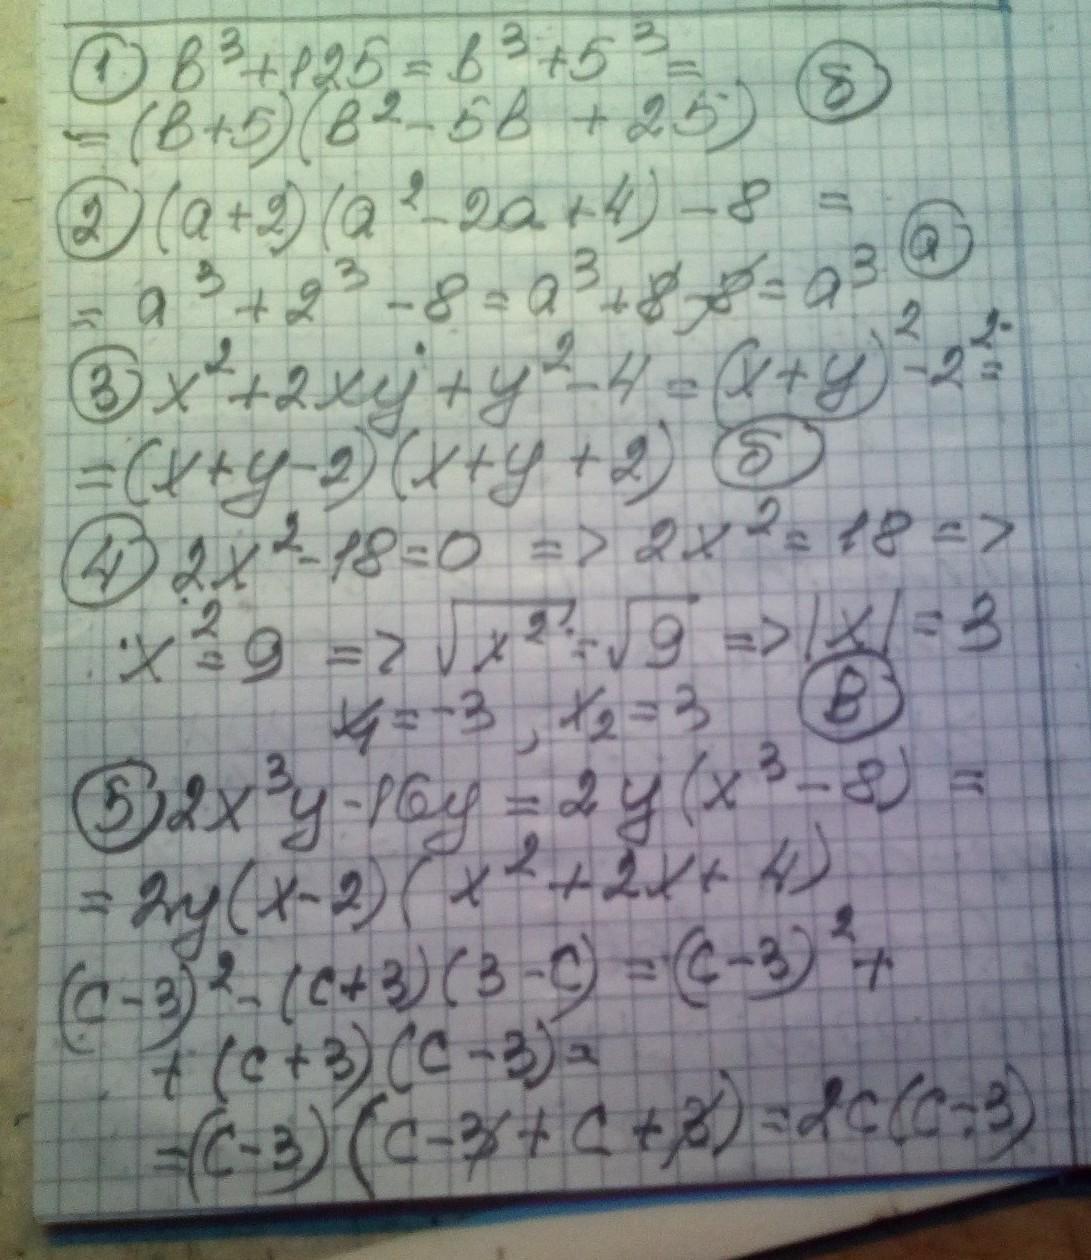 ① b³+125=b³+5³= (б)
=(b+5)(b²-5b+25)
② (a+2)(a²-2a+4)-8=
=a³+2³-8=a³+8-8=a³ (а)
③ x²+2xy+y²-4=(x+y)²-2²=
=(x+y-2)(x+y+2) (б)
④ 2x²-18=0 => 2x²=18 =>
x²=9 => √x²=√9 => |x|=3
x₁=-3, x₂=3 (В)
⑤ 2x³y-16y=2y(x³-8)=
=2y(x-2)(x²+2x+4)
(c-3)²-(c+3)(3-c)=(c-3)²+
+(c+3)(c-3)=
=(c-3)(c-3+c+3)=2c(c-3)